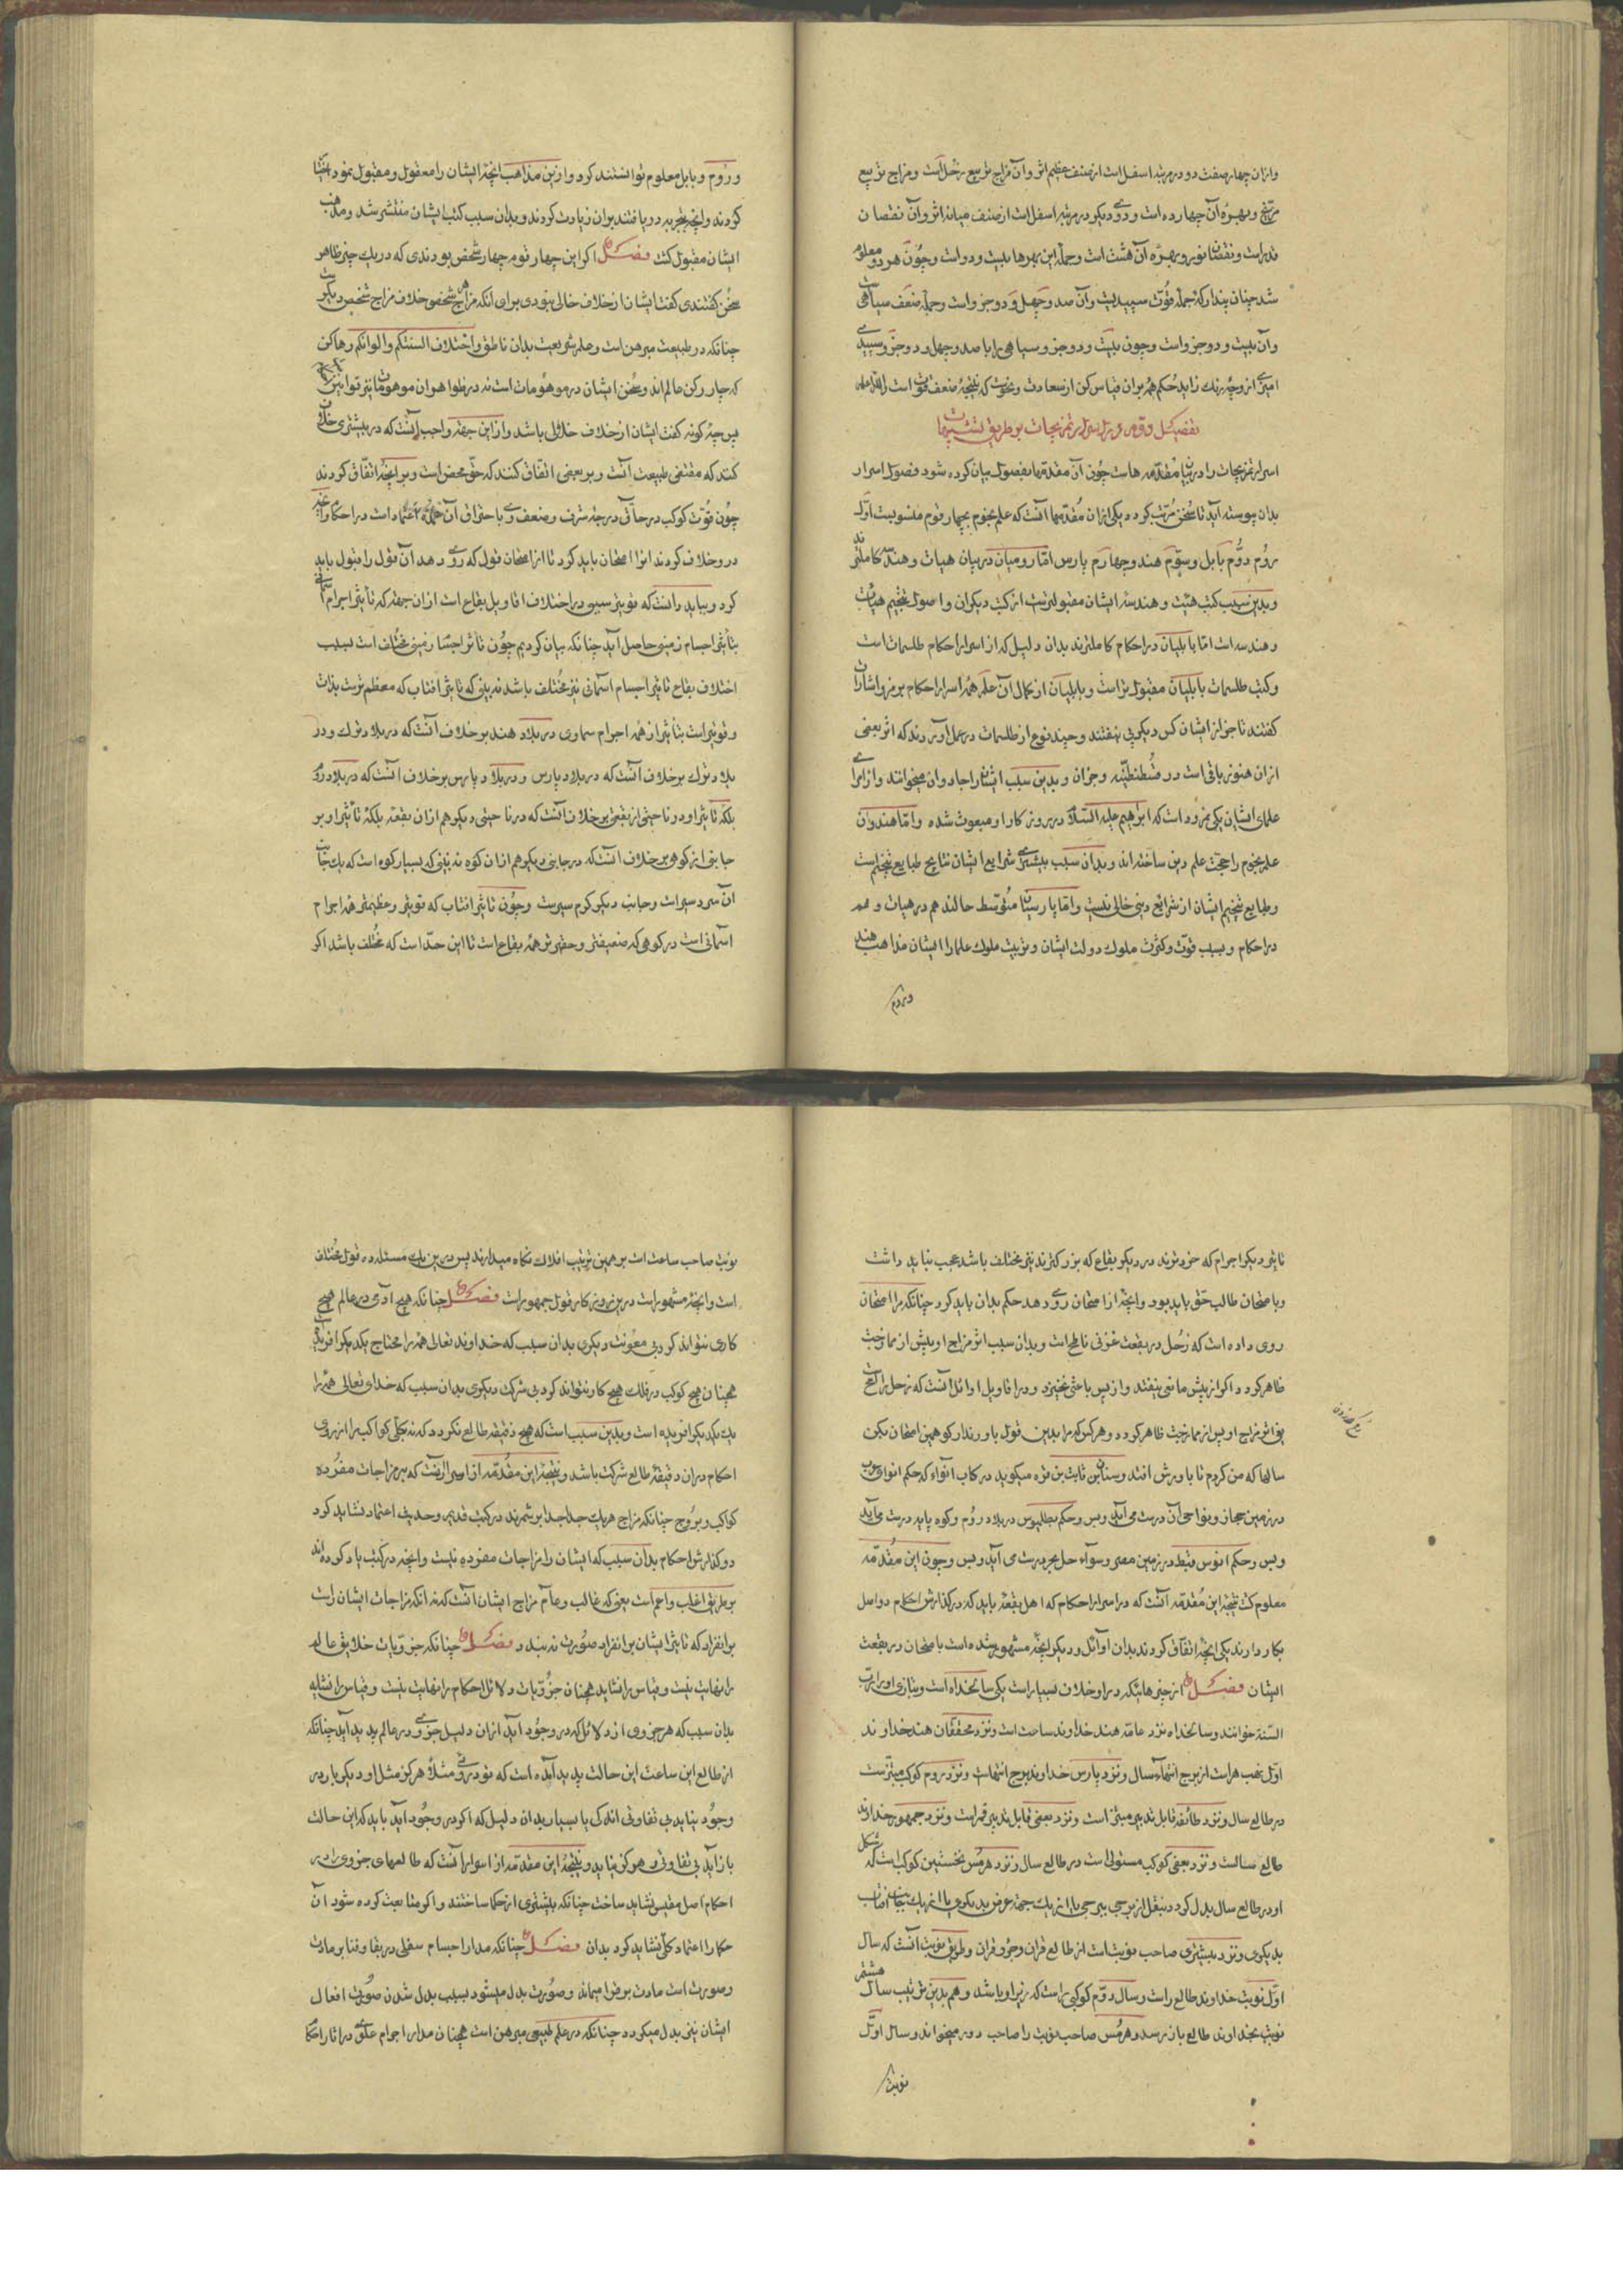 وازان چهار صفت دو در مرتبه اسفل است از صنف عظیم اثر وآن مزاج تربیع زحل است ومزاج تربیع
مریخ وبهره آن چهارده است ودوی دیکر در مرتبه اسفل است از صنف میانه اثر وآن نقصان
قدر است ونقصان نور وبهره آن هشت است وجمله این بهرها بیست ودو است وچون هر دو معلوم
شد چنان پندار که جمله قوت سپیدیست وآن صد وچهل ودو جزو است وجمله ضعف سیاهی
وآن بیست ودو جزو است وچون بیست ودو جزو سیاهی را با صد وچهل ودو جزو سپیدی
امیزی از وچه رنک زاید حکم هم بران قیاس کن از سعادت ونحوست که نتیجه ضعف قوت است والله اعلم
تفصیل دوم در اسرار تمزیجات بر طریق تشبیهات
اسرار تمزیجات را درین مقدمه هاست چون آن مقدمها بفصول بیان کرده شود فصول اسرار
بدان پیوسته آید تا سخن مرتب کردد یکی ازان مقدمها آنست که علم نجوم بچهار قوم منسوبست اول
روم دوم بابل وسوم هند وچهارم پارس اما رومیان در بیان هیات وهندسه کاملترند
وبدین سبب کتب هیئت وهندسه ایشان مقبولترست از کتب دیکران واصول تنجیم هیات
وهندسه است اما بابلیان در احکام کاملترند بدان دلیل که از اسرار احکام طلسمات است
وکتب طلسمات بابلیان مقبول تراست وبابلیان از کمال آن علم همه اسرار احکام برمز واشارات
کفتند تا جز از ایشان کس دیکر پی نیفتند وچند نوع از طلسمات در عمل آوردند که اثر بعضی
ازان هنوز باقی است در قسطنطنیه وجز آن وبدین سبب ایشانرا جادوان میخوانند واز ابرای
علمای ایشان یکی نمرود است که ابراهیم علیه السلام در روزکار او مبعوث شده واما هندوان
علم نجوم را حجت علم دین ساخته اند وبدان سبب بیشتری شرایع ایشان نتایج طبایع تنجیم است
وطبایع تنجیم ایشان از شرائع دینی خالی نیست واما پارسیان متوسط حالند هم در هیات وهم
در احکام وبسبب قوت وکثرت ملوک دولت ایشان وتربیت ملوک علما را ایشان مذاهب هند
وروم
وروم وبابل معلوم توانستند کرد وازین مذاهب انچه ایشان را معقول ومقبول نمود اختیار
کردند وانچه بتجربه دریافتند بران زیادت کردند وبدان سبب کتب ایشان منتشر شد ومذهب
ایشان مقبول کشت فصل اکر این چهار قوم چهار شخص بودندی که در یک چیز ظاهر
سخن کفتندی کفت ایشان از خلاف خالی نبودی برای آنکه مزاج هر شخص خلاف مزاج شخص دیکرست
چنانکه در طبیعت مبرهن است وعلم شریعت بدان ناطق واختلاف السنتکم والوانکم
که چهار رکن عالم اند وسخن ایشان در موهومات است نه در ظواهر
بهیچ کونه کفت ایشان از خلاف خالی باشد وازین جهه واجب آنست که در بیشتری خلاف
کنند که مقتضی طبیعت آنست وبر بعضی اتفاق کنند که حق محض است وبر انچه اتفاق کردند
چون قوت کوکب در حالتی درجه شرف وضعف وی باحتراق آن جمله اعتماد است در احکام وانچه
درو خلاف کردند انرا امتحان باید کرد تا از امتحان قول که روی دهد آن قول را قبول باید
کرد وبباید دانست که قویتر سببی در اختلاف اقاویل بقاع است ازان جهه که تأثیر اجرام سماوی
بتأثیر اجسام زمینی حاصل آید چنانکه بیان کردیم چون تأثر اجسام زمینی مختلف است بسبب
اختلاف بقاع تأثیر اجسام آسمانی نیز مختلف باشد نه بینی که تأثیر افتاب که معظم ترست بذات
وقویتر است بتأثیر از همه اجرام سماوی در بلاد هند بر خلاف آنست که در بلاد ترک ودر
بلاد ترک بر خلاف آنست که در بلاد پارس ودر بلاد پارس بر خلاف آنست که در بلاد روم
بلکه تأثیر او در ناحیتی از بقعتی بر خلاف آنست که در ناحیتی دیکر هم ازان بقعه بلکه تأثیر او بر
جانبی از کوهی بر خلاف آنست که در جانبی دیکر هم ازان کوه نه بینی که بسیار کوه است که یک جانب
آن سردسیر است وجانب دیکر کرم سیرست وچون تأثیر افتاب که قویتر وعظیمتر همه اجرام
آسمانی است در کوهی که ضعیفتر وحقیرتر همه بقاع است تا این حد است که مختلف باشد اکر
تأثیر دیکر اجرام که خردترند در دیکر بقاع که بزرکترند نیز مختلف باشد عجب نباید داشت
وبامتحان طالب حق باید بود وانچه از امتحان روی دهد حکم بدان باید کرد چنانکه مرا امتحان
روی داده است که زحل در بقعت غزنی ناطح است وبدان سبب اثر مزاج او پیش از ممازجت
ظاهر کردد اکر از پیش مانعی نیفتد واز پس باعثی نخیزد ودر اقاویل اوائل آنست که زحل راکع
یعنی اثر مزاج او پس از ممازجت ظاهر کردد وهر کس که مرا بدین قول باور ندارد کو همین امتحان بکن
سالها که من کردم تا باورش افتد وسنان بن ثابت بن قره میکوید در کتاب انواء که حکم انوای عرب
در زمین حجاز ونواحی آن درست می آید وبس وحکم بطلیوس در بلاد روم وکوه پایه درست می آید
وبس وحکم انوس قبط در زمین مصر وسواحل بحر درست می آید وبس وچون این مقدمه
معلوم کشت نتیجه این مقدمه آنست که در اسرار احکام که اهل بقعه باید که در کذارش احکام دو اصل
بکار دارند یکی انچه اتفاق کردند بدان اوائل ودیکر انچه مشهور شده است بامتحان در بقعت
ایشان فصل از چیزهائیکه درو خلاف بسیار است یکی سالخداه است وبتازی او را رب
السنة خوانند وسالخداه نزد عامه هند خداوند ساعت است ونزد محققان هند خداوند
اول شب هراست از برج انتهاء سال ونزد پارس خداوند برج انتهاست ونزد روم کوکب مبتزست
در طالع سال ونزد طائفه قابل تدبیر مبتز است ونزد بعضی قابل تدبیر قمر است ونزد جمهور خداوند
طالع سالست ونزد بعضی کوکب مستولی است در طالع سال ونزد هرمس نخستین کوکب است که شکل
او در طالع سال بدل کردد بنقل از برجی ببرجی یا از یک جهة عرض بدیکری یا از یک جانب افتاب
بدیکری ونزد بیشتری صاحب نوبت است از طالع قران وجزو قران وطریق نوبت آنست که سال
اول نوبت خداوند طالع راست وسال دوم کوکبی راست که زیر او باشد وهم بدین ترتیب سال هشتم
نوبت بخداوند طالع باز رسد وهرمس صاحب نوبت را صاحب دور میخواند وسال اول
نوبت
نوبت صاحب ساعت است بر همین ترتیب افلاک نکاه میدارند پس درین یک مسئله ده قول مختلف
است وانچه مشهور است درین روزکار قول جمهور است فصل چنانکه هیچ آدمی در عالم هیچ
کاری نتواند کرد بی معونت دیکری بدان سبب که خداوند تعالی همه را محتاج یکدیکر افریده است
همچنان هیچ کوکب در فلک هیچ کار نتواند کرد بی شرکت دیکری بدان سبب که خدای تعالی همه را
بیکدیکر افریده است وبدین سبب است که هیچ دقیقه طالع نکردد که نه بکلی کواکب را از روی
احکام دران دقیقه طالع شرکت باشد ونتیجه این مقدمه از اسرار آنست که بر مزاجات مفرده
کواکب وبروج چنانکه مزاج هریک جدا جدا بر شمرند در کتب قدیم وحدیث اعتماد نشاید کرد
در کذارش احکام بدان سبب که ایشان را مزاجات مفرده نیست وانچه در کتب یاد کرده اند
بر طریق اغلب واعم است یعنی که غالب وعام مزاج ایشان آنست که نه آنکه مزاجات ایشان راست
بر انفراد که تأثیر ایشان بر انفراد صورت نه بندد فصل چنانکه جزویات خلایق عالم
را نهایت نیست وقیاس را نشاید همچنان جزویات دلائل احکام را نهایت نیست وقیاس را نشاید
بدان سبب که هر جزوی از دلائل که در وجود آید ازان دلیل جزوی در عالم پدید آید چنانکه
از طالع این ساعت این حالت پدید آمده است که تو درویی مثلا هرکز مثل او دیکر بار در
وجود نیاید بی تفاوتی اندک یا بسیار بدان دلیل که اکر در وجود آید باید که این حالت
باز آید بی تفاوتی وهرکز نیاید ونتیجه این مقدمه از اسرار آنست که طالعهای جزوی را در
احکام اصل مقیس نشاید ساخت چنانکه بیشتری از حکما ساختند واکر متابعت کرده شود آن
حکما را اعتماد کلی نشاید کرد بدان فصل چنانکه مدار اجسام سفلی در بقا وفنا بر مادت
وصورت است مادت بر قرار میماند وصورت بدل میشود بسبب بدل شدن صورت افعال
ایشان نیز بدل میکردد چنانکه در علم طبیعی مبرهن است همچنان مدار اجرام علوی در اثار احکام